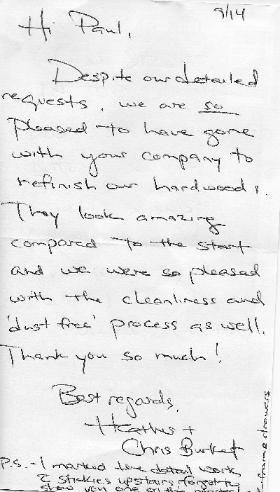 9/14
Hi Paul,
Despite our detailed
requests, we are so
pleased to have gone
with your company to
refinish our hardwoods.
They look amazing
compared to the start
and we were so pleased
with the cleanliness and
'dust free' process as well.
Thank you so much!
Best regards,
Heather +
Chris
P.S. - I marked the detail work
2 stickies upstairs forgot to
show you one on the